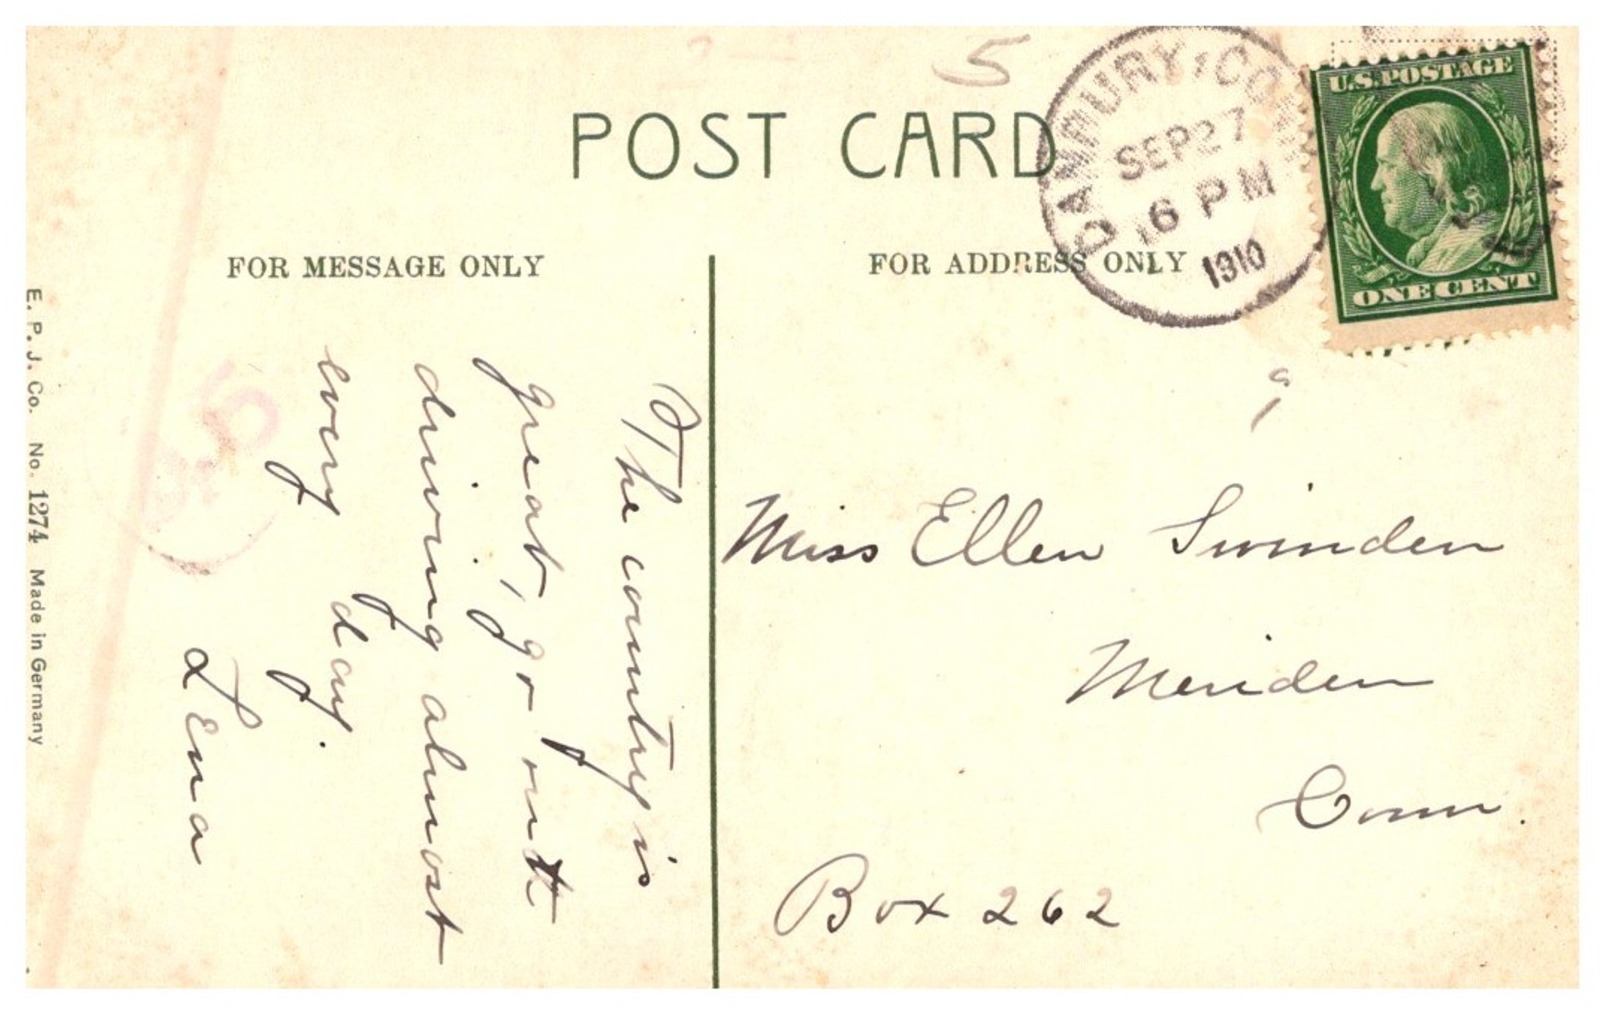 5
POST CARD
DANBURY, CONN.
SEP 27
6 PM
1910
U.S. POSTAGE
ONE CENT
FOR MESSAGE ONLY
FOR ADDRESS ONLY
The country is
great, go out
driving almost
every day.
Lena
Miss Ellen Swinden
Meriden
Conn.
Box 262
E. P. J. Co. No. 1274 Made in Germany